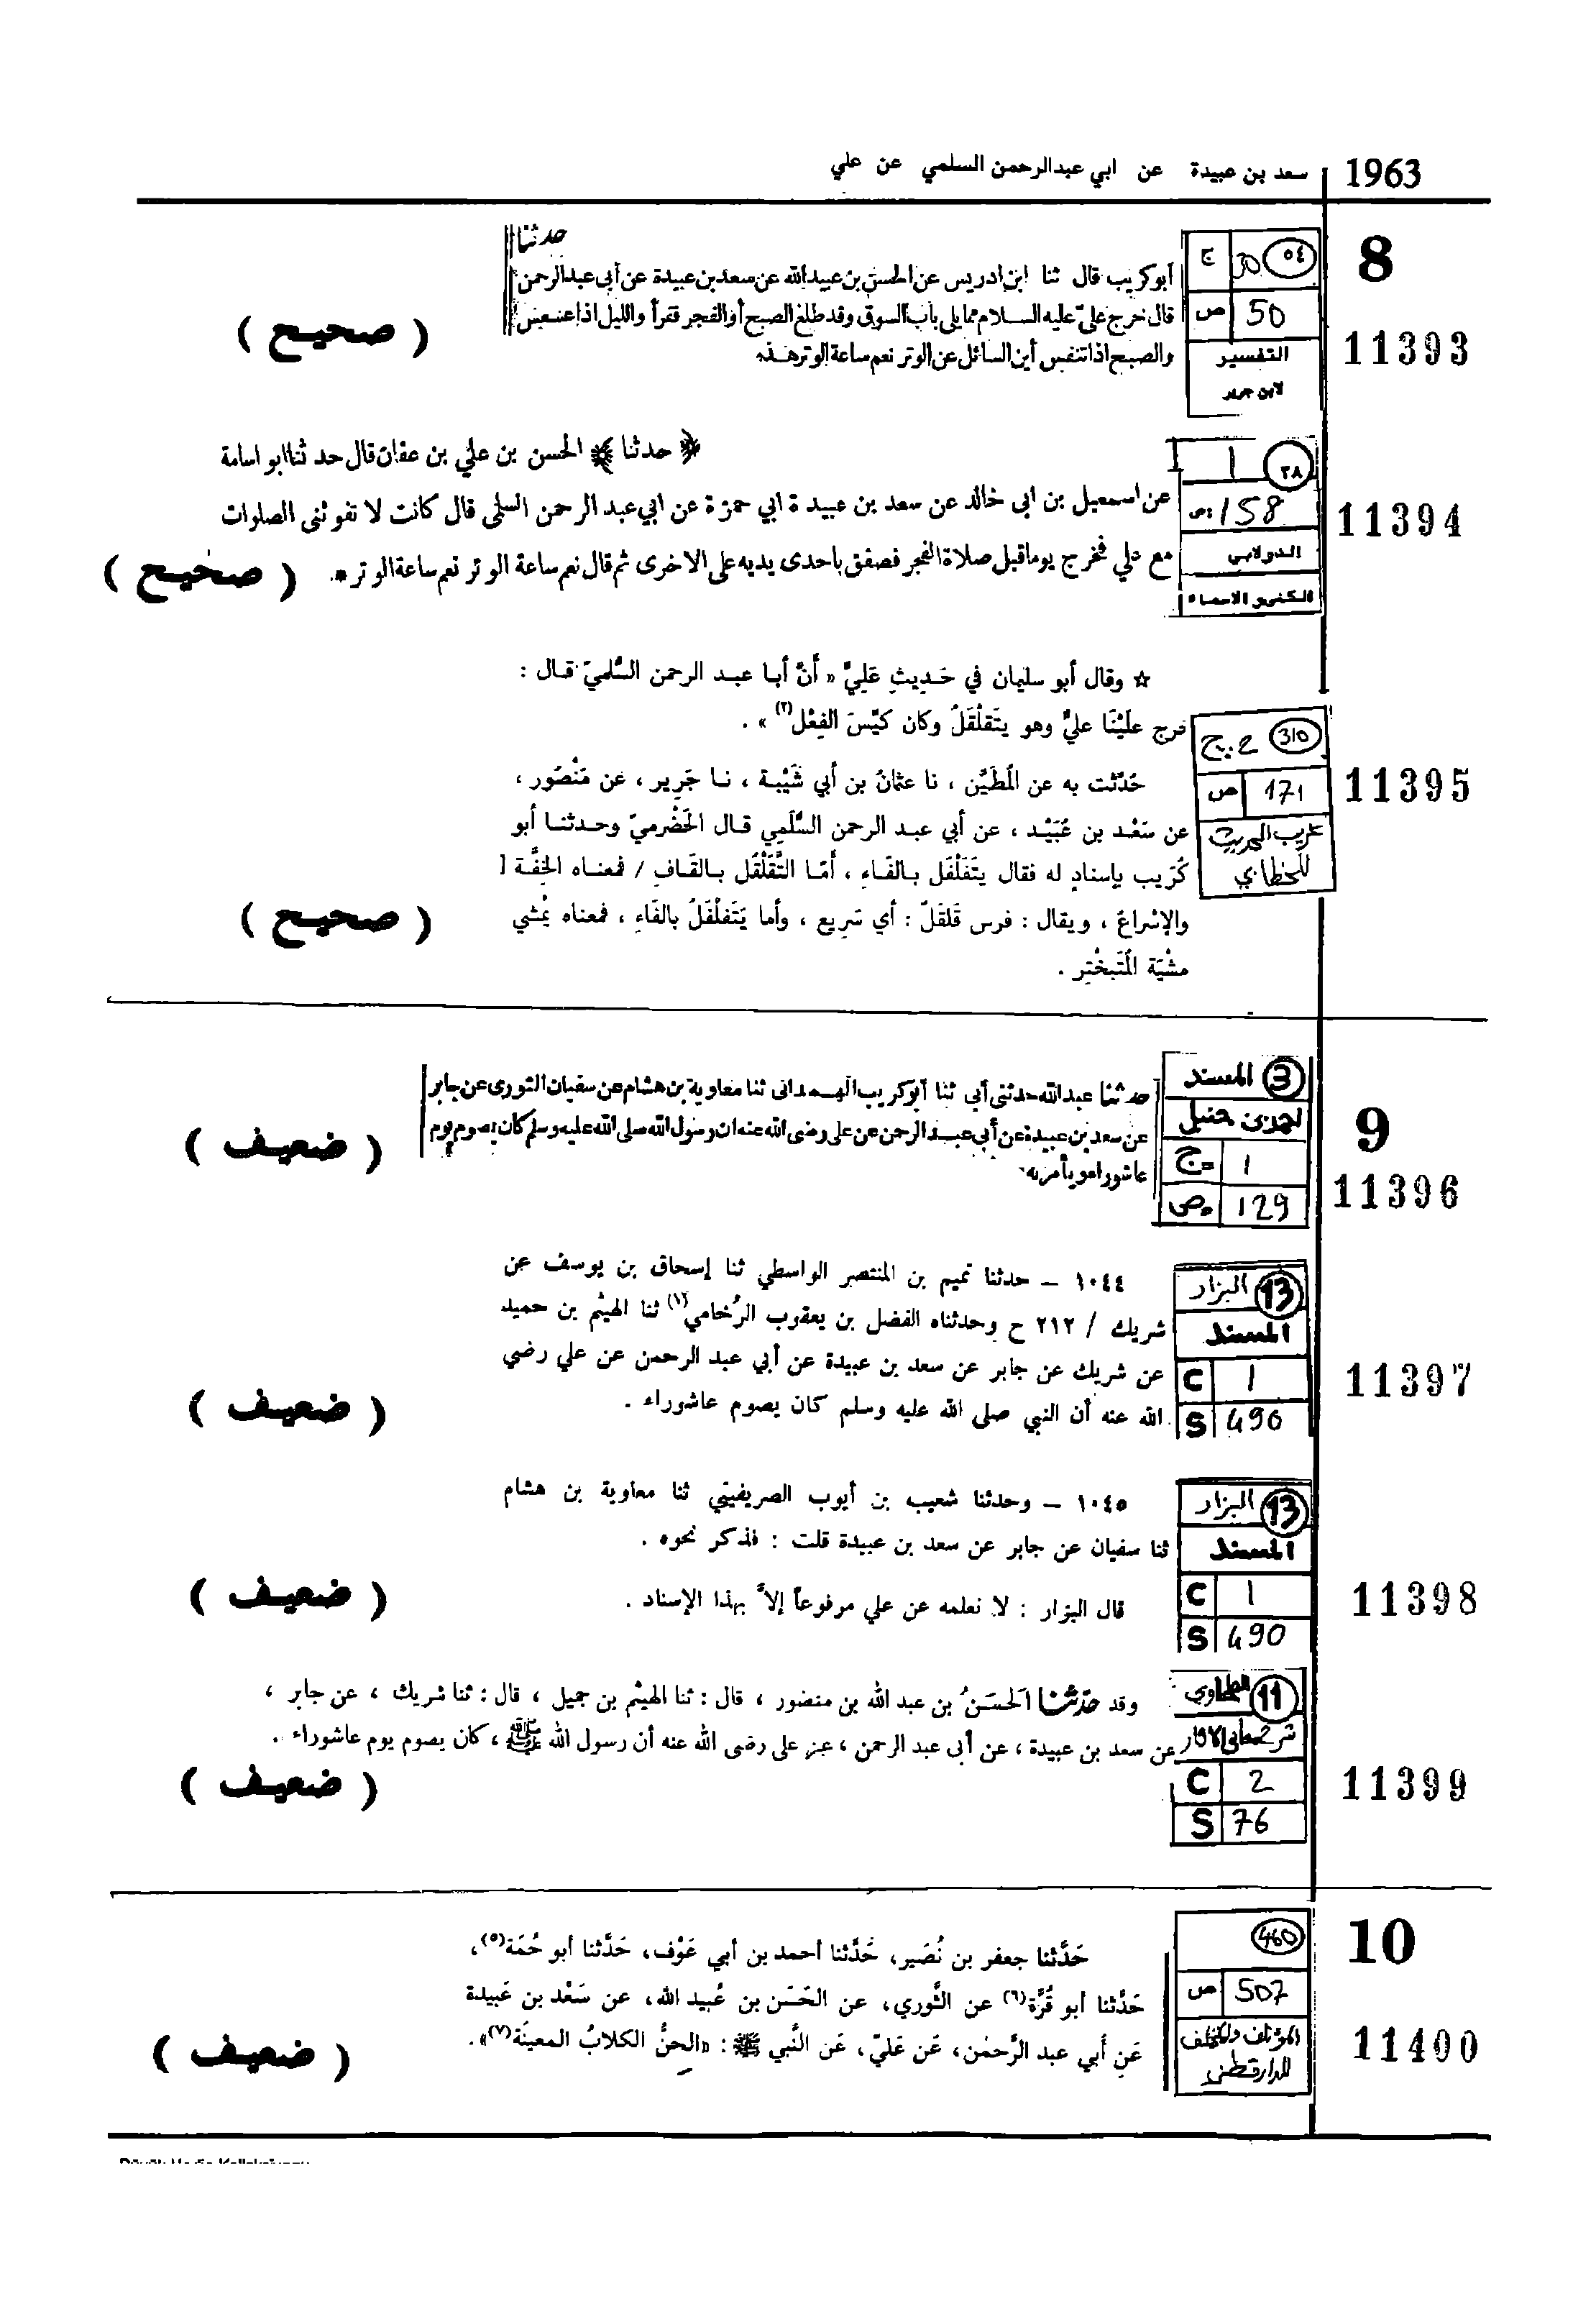 1963 سعد بن عبيدة عن ابي عبدالرحمن السلمي عن علي
8
11393
٥٤ 30 ج
50 ص
التفسير
لابن جرير
حدثنا
أبوكريب قال ثنا ابن ادريس عن الحسن بن عبيدالله عن سعد بن عبيدة عن أبى عبدالرحمن
قال خرج علىّ عليه السلام مما يلى باب السوق وقد طلع الصبح أوالفجر فقرأ والليل اذا عسعس
والصبح اذا تنفس أين السائل عن الوتر نعم ساعة الوتر هذه
( صحيح )
11394
٢٨ 1
158 ص
الدولابي
الكنى و الاسماء
حدثنا الحسن بن علي بن عفان قال حدثنا ابو اسامة
عن اسمعيل بن ابى خالد عن سعد بن عبيدة ابي حمزة عن ابي عبد الرحمن السلمى قال كانت لا تفوتنى الصلوات
مع علي فخرج يوما قبل صلاة الفجر فصفق باحدى يديه على الاخرى ثم قال نعم ساعة الوتر نعم ساعة الوتر *.
( صحيح )
11395
310 2 ج
171 ص
غريب الحديث
للخطابي
☆ وقال أبو سليمان في حَديثِ عَلِيٍّ « أَنَّ أبا عبد الرحمن السُّلميّ قال :
خرج علَيْنَا عليٌّ وهو يتَقَلْقَلُ وكان كَيِّسَ الفِعْل(٣) » .
حُدِّثت به عن المُطَيَّن ، نا عثمانُ بن أبي شَيْبة ، نا جَرير ، عن مَنْصُور ،
عن سَعْد بن عُبَيْد ، عن أبي عبد الرحمن السُّلَمِي قال الحَضْرميّ وحدثنا أبو
كُرَيب بإسنادٍ له فقال يتَفَلْفَل بالفَاءِ ، أمّا التَّقَلْقُل بالقَافِ / فمعناه الخِفَّة [
والإسْراعُ ، ويقال : فرس قَلقَلٌ : أي سَرِيع ، وأما يَتَفلْفَلُ بالفَاءِ ، فمعناه يْمشي
مشْيَة المُتَبخْتِر .
( صحيح )
9
11396
3 المسند
احمد بن حنبل
1 ج
129 ص
حدثنا عبدالله حدثنى أبي ثنا أبوكريب الهمدانى ثنا معاوية بن هشام عن سفيان الثورى عن جابر
عن سعد بن عبيدة عن أبى عبد الرحمن عن على رضى الله عنه ان رسول الله صلى الله عليه وسلم كان يصوم يوم
عاشوراء ويأمر به
( ضعيف )
11397
13 البزار
المسند
C 1
S 490
١٠٤٤ – حدثنا تميم بن المنتصر الواسطي ثنا إسحاق بن يوسف عن
شريك / ٢١٢ ح وحدثناه الفضل بن يعقوب الرُخامي(١) ثنا الهيثم بن حميد
عن شريك عن جابر عن سعد بن عبيدة عن أبي عبد الرحمن عن علي رضي
الله عنه أن النبي صلى الله عليه وسلم كان يصوم عاشوراء .
( ضعيف )
11398
13 البزار
المسند
C 1
S 490
١٠٤٥ – وحدثنا شعيب بن أيوب الصريفيني ثنا معاوية بن هشام
ثنا سفيان عن جابر عن سعد بن عبيدة قلت : فذكر نحوه .
قال البزار : لا نعلمه عن علي مرفوعاً إلاّ بهذا الإسناد .
( ضعيف )
11399
11 الطحاوي
شرح معاني الآثار
C 2
S 76
وقد حدّثنا الحَسَنُ بن عبد الله بن منصور ، قال : ثنا الهيثم بن جميل ، قال : ثنا شريك ، عن جابر ،
عن سعد بن عبيدة ، عن أبى عبد الرحمن ، عن على رضى الله عنه أن رسول الله ﷺ ، كان يصوم يوم عاشوراء .
( ضعيف )
10
11400
460
507 ص
المؤتلف والمختلف
للدارقطني
حَدَّثنا جعفر بن نُصَير، حَدَّثنا أحمد بن أبي عَوْف، حَدَّثنا أبو حُمَة(٥)،
حَدَّثنا أبو قُرَّة(٦) عن الثَّوري، عن الحَسَن بن عُبيد الله، عن سَعْد بن عَبيدة
عَنِ أَبي عبد الرَّحمٰن، عَن عَليّ، عَن النَّبي ﷺ : «الحِنُّ الكلابُ المعينَة(٧)».
( ضعيف )